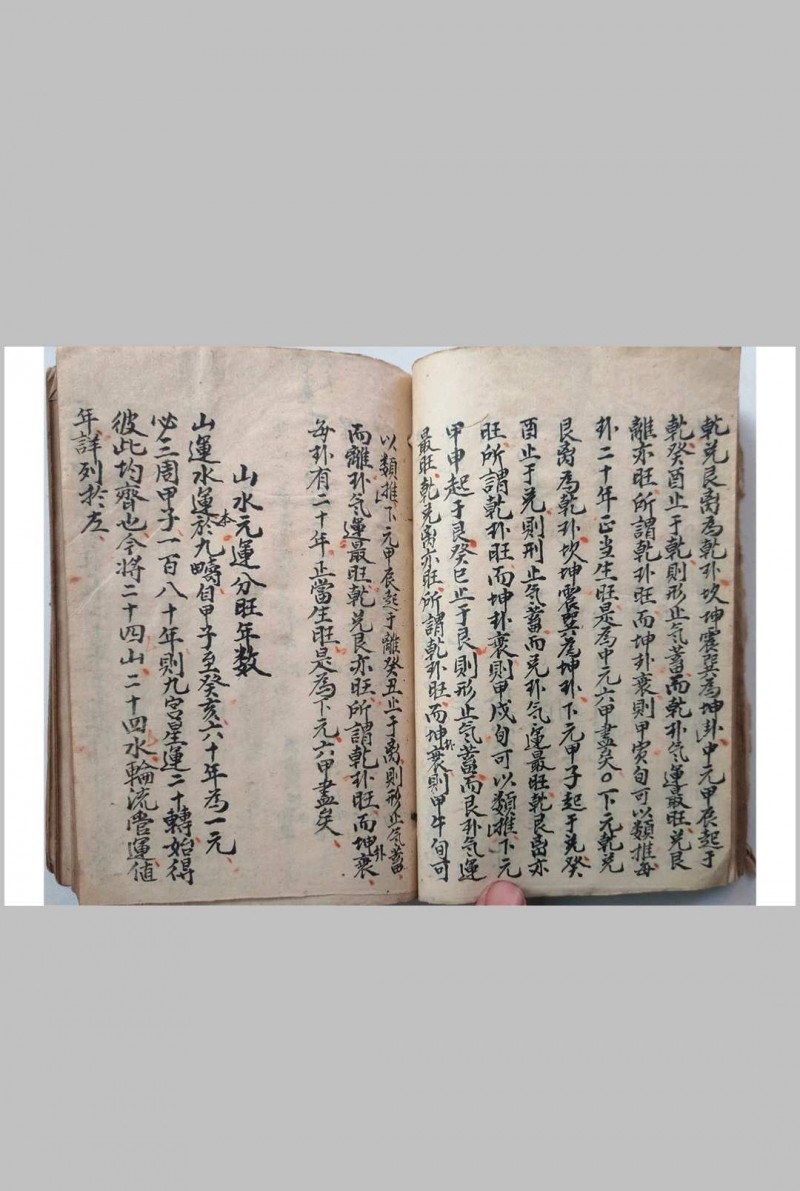 乾兑艮离為乾卦坎坤震巽為坤卦中元甲辰起于
乾癸酉止于乾則形止气蓄而乾卦气運最旺兑艮
離亦旺所謂乾卦旺而坤卦衰則甲寅旬可以類推每
卦二十年正当生旺是為中元六甲盡矣〇下元乾兑
艮离為乾卦坎坤震巽為坤卦下元甲子起于兑癸
酉止于兑則刑止气蓄而兑卦气運最旺乾艮离亦
旺所謂乾卦旺而坤卦衰則甲戌旬可以類推下元
甲申起于艮癸巳止于艮則形止气蓄而艮卦气運
最旺乾兑离亦旺所謂乾卦旺而坤卦衰則甲午旬可
以類推下元甲辰起于離癸丑止于离則形止气蓄
而離卦气運最旺乾兑艮亦旺所謂乾卦旺而坤卦衰
每卦有二十年正當生旺是為下元六甲盡矣
山水元運分旺年数
山運水運本於九疇自甲子至癸亥六十年為一元
必三周甲子一百八十年則九宮星運二十轉始得
彼此均齊也今將二十四山二十四水輪流营運值
年詳列於左